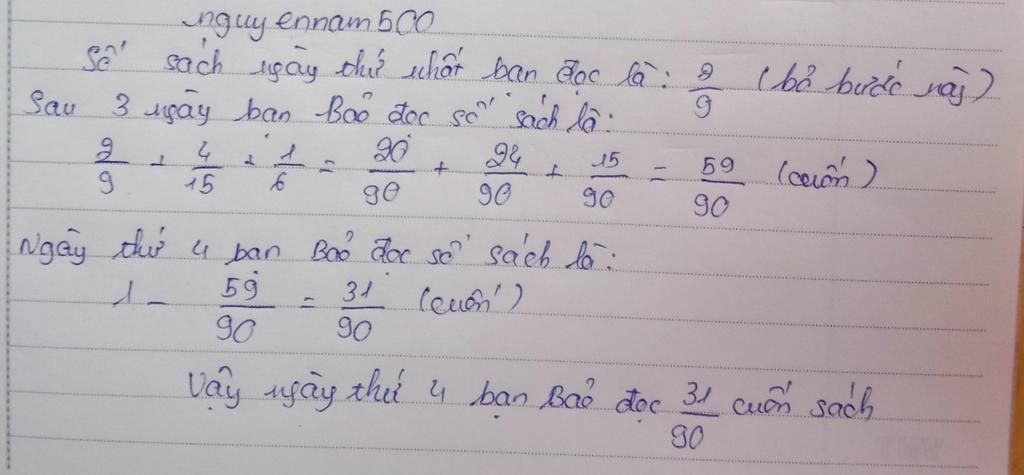 nguyennam500
Số sách ngày thứ nhất bạn đọc là: 2/9 (bỏ bước này)
Sau 3 ngày bạn Bảo đọc số sách là:
2/9 + 4/15 + 1/6 = 20/90 + 24/90 + 15/90 = 59/90 (cuốn)
Ngày thứ 4 bạn Bảo đọc số sách là:
1 - 59/90 = 31/90 (cuốn)
Vậy ngày thứ 4 bạn Bảo đọc 31/90 cuốn sách